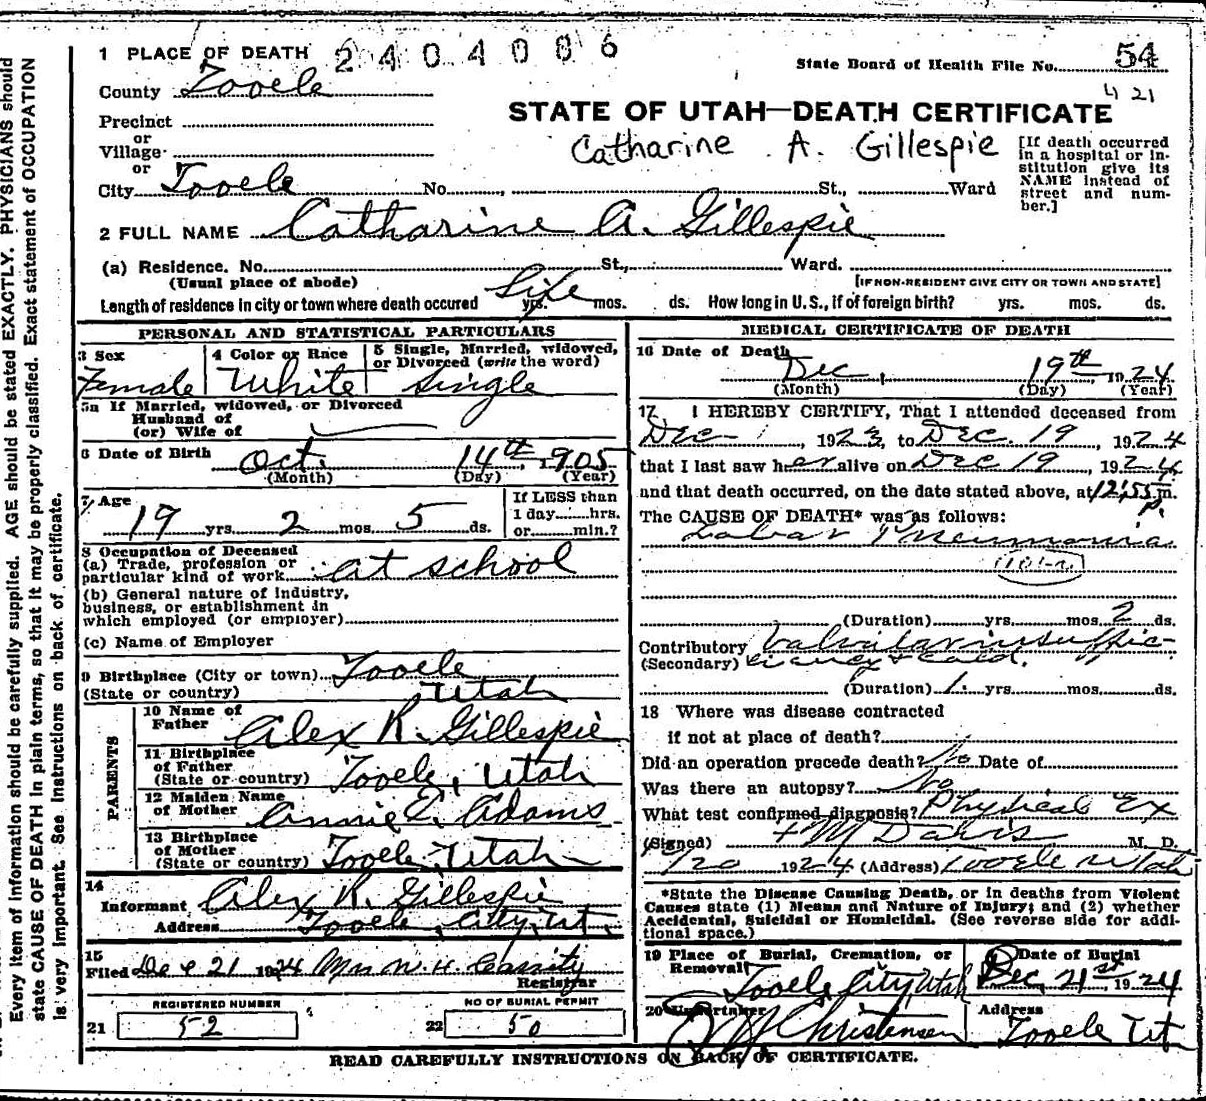 1 PLACE OF DEATH 2404086
State Board of Health File No. 54
County Tooele
4 21
STATE OF UTAH—DEATH CERTIFICATE
Precinct
or
Village
Catharine A. Gillespie
[If death occurred in a hospital or institution give its NAME instead of street and number.]
or
City Tooele No. St., Ward
2 FULL NAME Catharine A. Gillespie
(a) Residence. No. St., Ward.
(Usual place of abode) [IF NON-RESIDENT GIVE CITY OR TOWN AND STATE]
Length of residence in city or town where death occured Life yrs. mos. ds. How long in U.S., if of foreign birth? yrs. mos. ds.
PERSONAL AND STATISTICAL PARTICULARS
3 Sex Female
4 Color or Race White
5 Single, Married, widowed, or Divorced (write the word) Single
5a If Married, widowed, or Divorced
Husband of
(or) Wife of
6 Date of Birth Oct. 14th, 1905
(Month) (Day) (Year)
7 Age 19 yrs. 2 mos. 5 ds.
If LESS than
1 day hrs.
or min.?
8 Occupation of Deceased
(a) Trade, profession or
particular kind of work at school
(b) General nature of Industry,
business, or establishment in
which employed (or employer)
(c) Name of Employer
9 Birthplace (City or town) Tooele
(State or country) Utah
PARENTS
10 Name of
Father Alex R. Gillespie
11 Birthplace
of Father
(State or country) Tooele, Utah
12 Maiden Name
of Mother Annie E. Adams
13 Birthplace
of Mother
(State or country) Tooele, Utah
14
Informant Alex R. Gillespie
Address Tooele, City, Ut.
15
Filed Dec 21 1924 Mrs W. H. Cassity
Registrar
REGISTERED NUMBER
21 52
NO OF BURIAL PERMIT
22 50
MEDICAL CERTIFICATE OF DEATH
16 Date of Death Dec. 19th, 1924
(Month) (Day) (Year)
17 I HEREBY CERTIFY, That I attended deceased from
Dec 1, 1923, to Dec. 19, 1924
that I last saw her alive on Dec 19, 1924,
and that death occurred, on the date stated above, at 12:55 p.m.
The CAUSE OF DEATH* was as follows:
Lobar Pneumonia
101-a
(Duration) yrs. mos. 2 ds.
Contributory Valvular insuffic-
(Secondary) iency & Cold.
(Duration) 1 yrs. mos. ds.
18 Where was disease contracted
if not at place of death?
Did an operation precede death? No Date of
Was there an autopsy? No
What test confirmed diagnosis? Physical Ex
(Signed) M Davis M. D.
/20 1924 (Address) Tooele Utah
*State the Disease Causing Death, or in deaths from Violent
Causes state (1) Means and Nature of Injury; and (2) whether
Accidental, Suicidal or Homicidal. (See reverse side for additional space.)
19 Place of Burial, Cremation, or
Removal Tooele City, Utah
Date of Burial
Dec. 21st, 1924
20 Undertaker Christensen
Address
Tooele Ut
READ CAREFULLY INSTRUCTIONS ON BACK OF CERTIFICATE.
Every item of information should be carefully supplied. AGE should be stated EXACTLY. PHYSICIANS should
state CAUSE OF DEATH in plain terms, so that it may be properly classified. Exact statement of OCCUPATION
is very important. See Instructions on back of certificate.